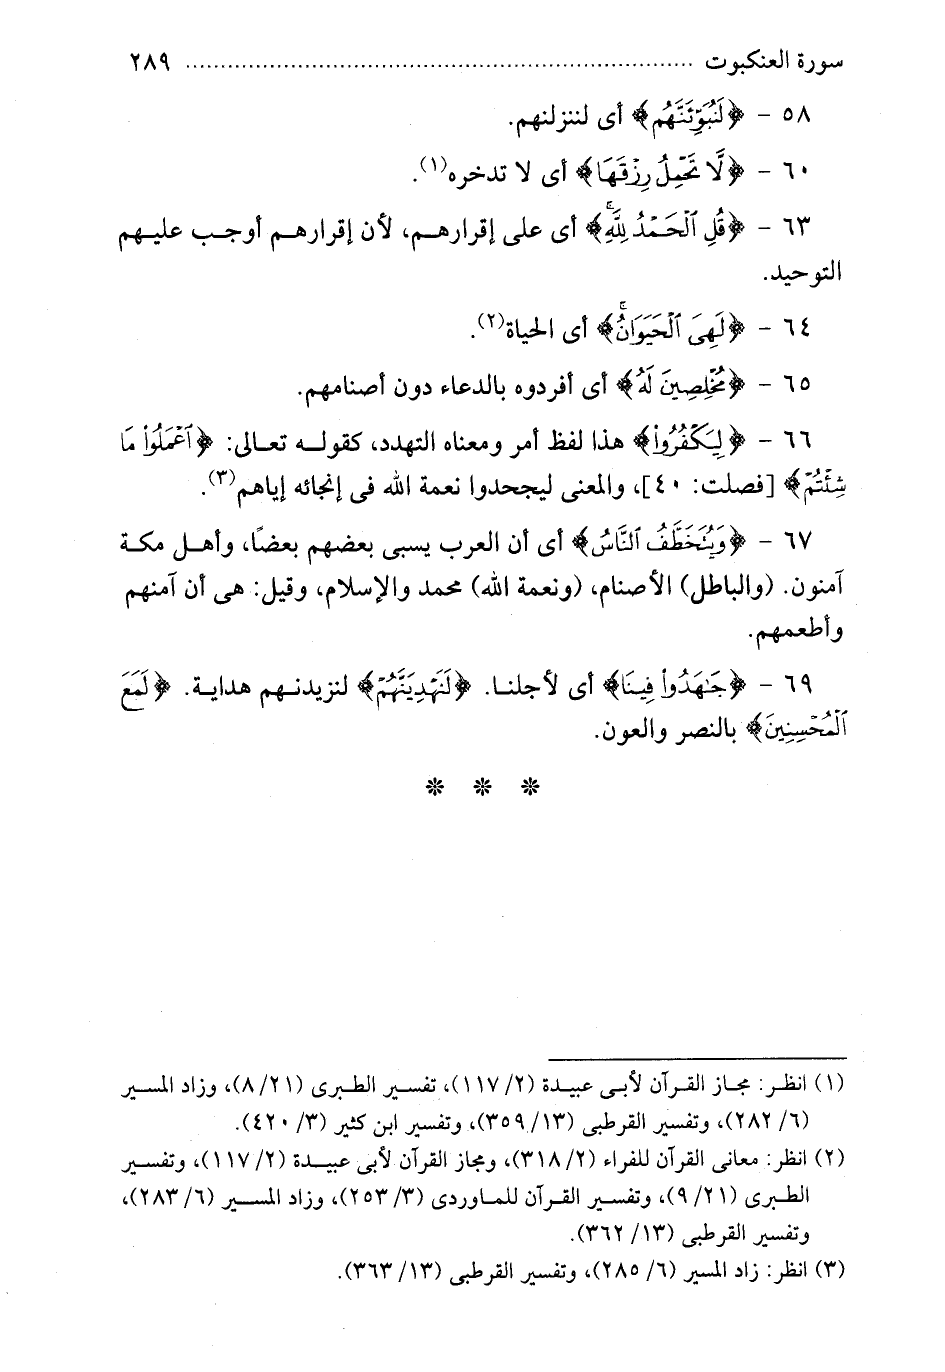 سورة العنكبوت ........................................................................ ٢٨٩
٥٨ - ﴿لَنُبَوِّئَنَّهُم﴾ أى لننزلنهم.
٦٠ - ﴿لَّا تَحْمِلُ رِزْقَهَا﴾ أى لا تدخره(١).
٦٣ - ﴿قُلِ ٱلْحَمْدُ لِلَّهِۚ﴾ أى على إقرارهم، لأن إقرارهم أوجب عليهم
التوحيد.
٦٤ - ﴿لَهِىَ ٱلْحَيَوَانُۚ﴾ أى الحياة(٢).
٦٥ - ﴿مُخْلِصِينَ لَهُ﴾ أى أفردوه بالدعاء دون أصنامهم.
٦٦ - ﴿لِيَكْفُرُوا۟﴾ هذا لفظ أمر ومعناه التهدد، كقوله تعالى: ﴿ٱعْمَلُوا۟ مَا
شِئْتُمْ﴾ [فصلت: ٤٠]، والمعنى ليجحدوا نعمة الله فى إنجائه إياهم(٣).
٦٧ - ﴿وَيُتَخَطَّفُ ٱلنَّاسُ﴾ أى أن العرب يسبى بعضهم بعضًا، وأهل مكة
آمنون. (والباطل) الأصنام، (ونعمة الله) محمد والإسلام، وقيل: هى أن آمنهم
وأطعمهم.
٦٩ - ﴿جَٰهَدُوا۟ فِينَا﴾ أى لأجلنا. ﴿لَنَهْدِيَنَّهُمْ﴾ لنزيدنهم هداية. ﴿لَمَعَ
ٱلْمُحْسِنِينَ﴾ بالنصر والعون.
* * *
(١) انظر: مجاز القرآن لأبى عبيدة (٢/ ١١٧)، تفسير الطبرى (٢١/ ٨)، وزاد المسير
(٦/ ٢٨٢)، وتفسير القرطبى (١٣/ ٣٥٩)، وتفسير ابن كثير (٣/ ٤٢٠).
(٢) انظر: معانى القرآن للفراء (٢/ ٣١٨)، ومجاز القرآن لأبى عبيدة (٢/ ١١٧)، وتفسير
الطبرى (٢١/ ٩)، وتفسير القرآن للماوردى (٣/ ٢٥٣)، وزاد المسير (٦/ ٢٨٣)،
وتفسير القرطبى (١٣/ ٣٦٢).
(٣) انظر: زاد المسير (٦/ ٢٨٥)، وتفسير القرطبى (١٣/ ٣٦٣).